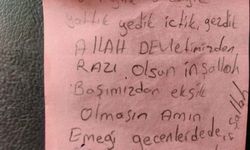 yattık yedik içtik, gezdik
ALLAH DEvLetimizden
RAZI Olsun inşallah
Başımızdan eksik
Olmasın Amin
Emeği geçenleidede,